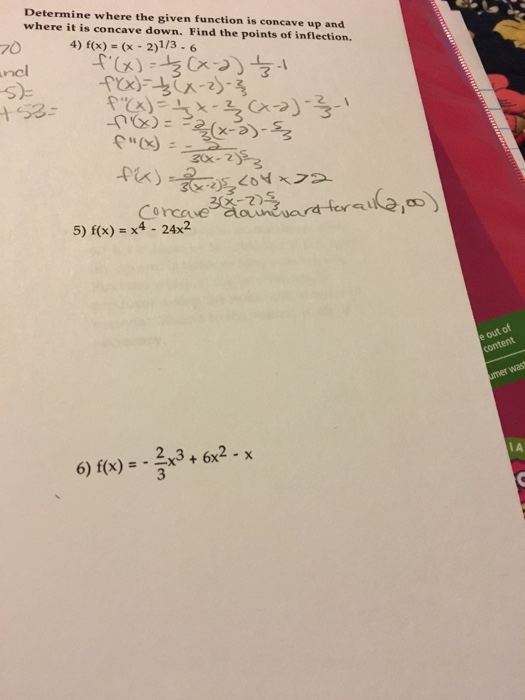 Determine where the given function is concave up and
where it is concave down. Find the points of inflection.
4) f(x) = (x - 2)1/3 - 6
f'(x) = 1/3 (x-2) 1/3 -1
f'(x) = 1/3 (x-2) - 2/3
f"(x) = 1/3 x - 2/3 (x-2) - 2/3 - 1
f"(x) = -2/3 (x-2) - 5/3
f"(x) = -2/3(x-2)5/3
f(x) = 2/3(x-2)5/3 <0 ∀ x >2
3(x-2)5/3
Concave downward for all (2,∞)
5) f(x) = x4 - 24x2
6) f(x) = - 2/3 x3 + 6x2 - x
70
s)=
+ 53=
e out of
content
umer wast
1A